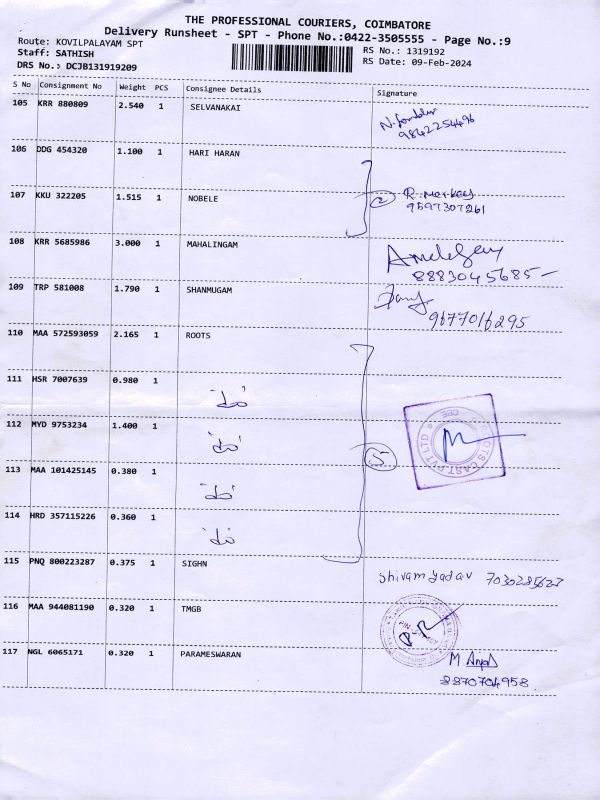 THE PROFESSIONAL COURIERS, COIMBATORE
Delivery Runsheet - SPT - Phone No.:0422-3505555 - Page No.:9
Route: KOVILPALAYAM SPT
RS No.: 1319192
Staff: SATHISH
RS Date: 09-Feb-2024
DRS No.: DCJB131919209
S No Consignment No Weight PCS Consignee Details Signature
105 KRR 880809 2.540 1 SELVANAKAI
9842254496
106 DDG 454320 1.100 1 HARI HARAN
107 KKU 322205 1.515 1 NOBELE
2
9597307261
108 KRR 5685986 3.000 1 MAHALINGAM
8883045685
109 TRP 581008 1.790 1 SHANMUGAM
9677016295
110 MAA 572593059 2.165 1 ROOTS
111 HSR 7007639 0.980 1
"do"
112 MYD 9753234 1.400 1
"do"
ROOTS CAST PVT LTD CBE
5
113 MAA 101425145 0.380 1
"do"
114 HRD 357115226 0.360 1
"do"
115 PNQ 800223287 0.375 1 SIGHN
Shivam yadav 7030285627
116 MAA 944081190 0.320 1 TMGB
117 NGL 6065171 0.320 1 PARAMESWARAN
8870704958